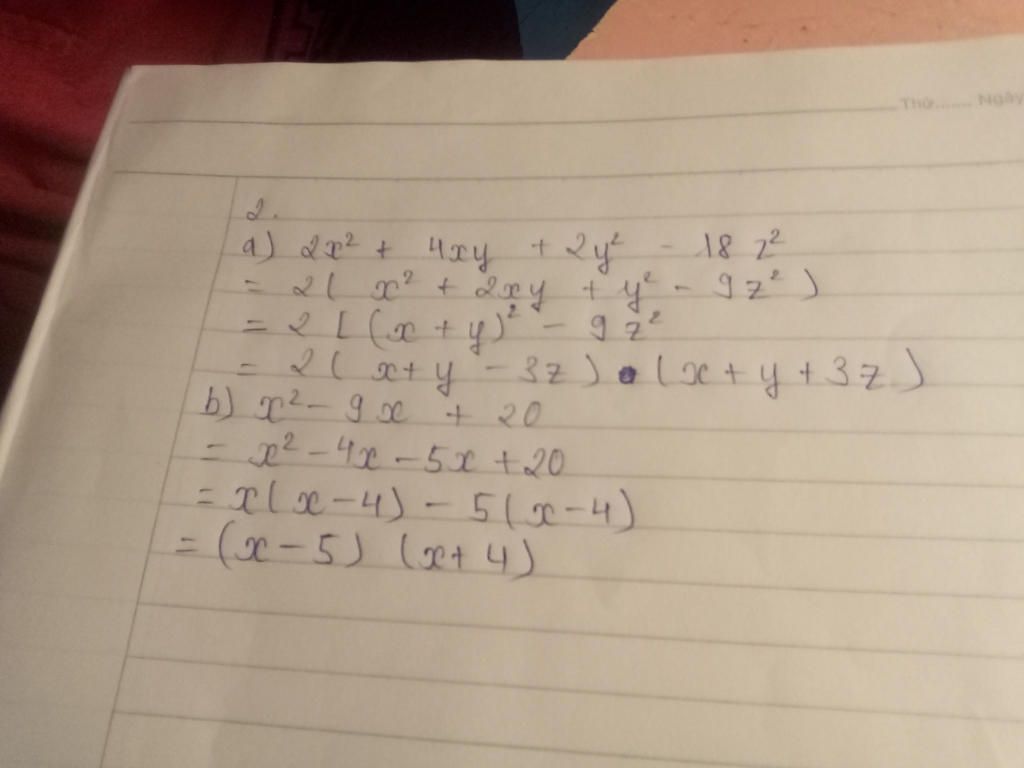 Thứ....... Ngày
2.
a) 2x² + 4xy + 2y² - 18z²
= 2( x² + 2xy + y² - 9z² )
= 2 [ (x + y)² - 9z²
= 2( x+y - 3z ) • ( x + y + 3z )
b) x² - 9x + 20
= x² - 4x - 5x + 20
= x( x - 4) - 5( x - 4)
= (x - 5) (x + 4)